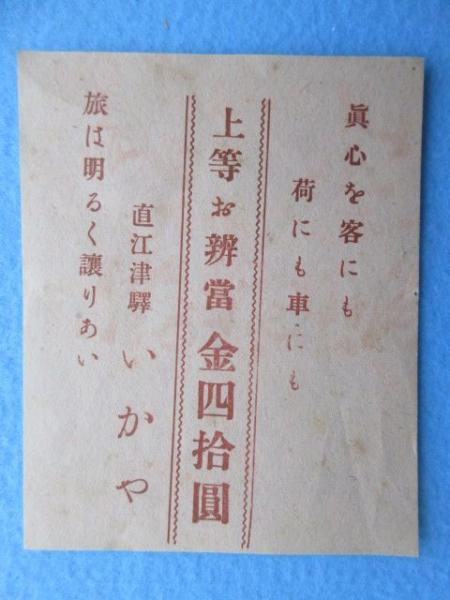 眞心を客にも
荷にも車にも
上等お辨當 金四拾圓
直江津驛 いかや
旅は明るく讓りあい